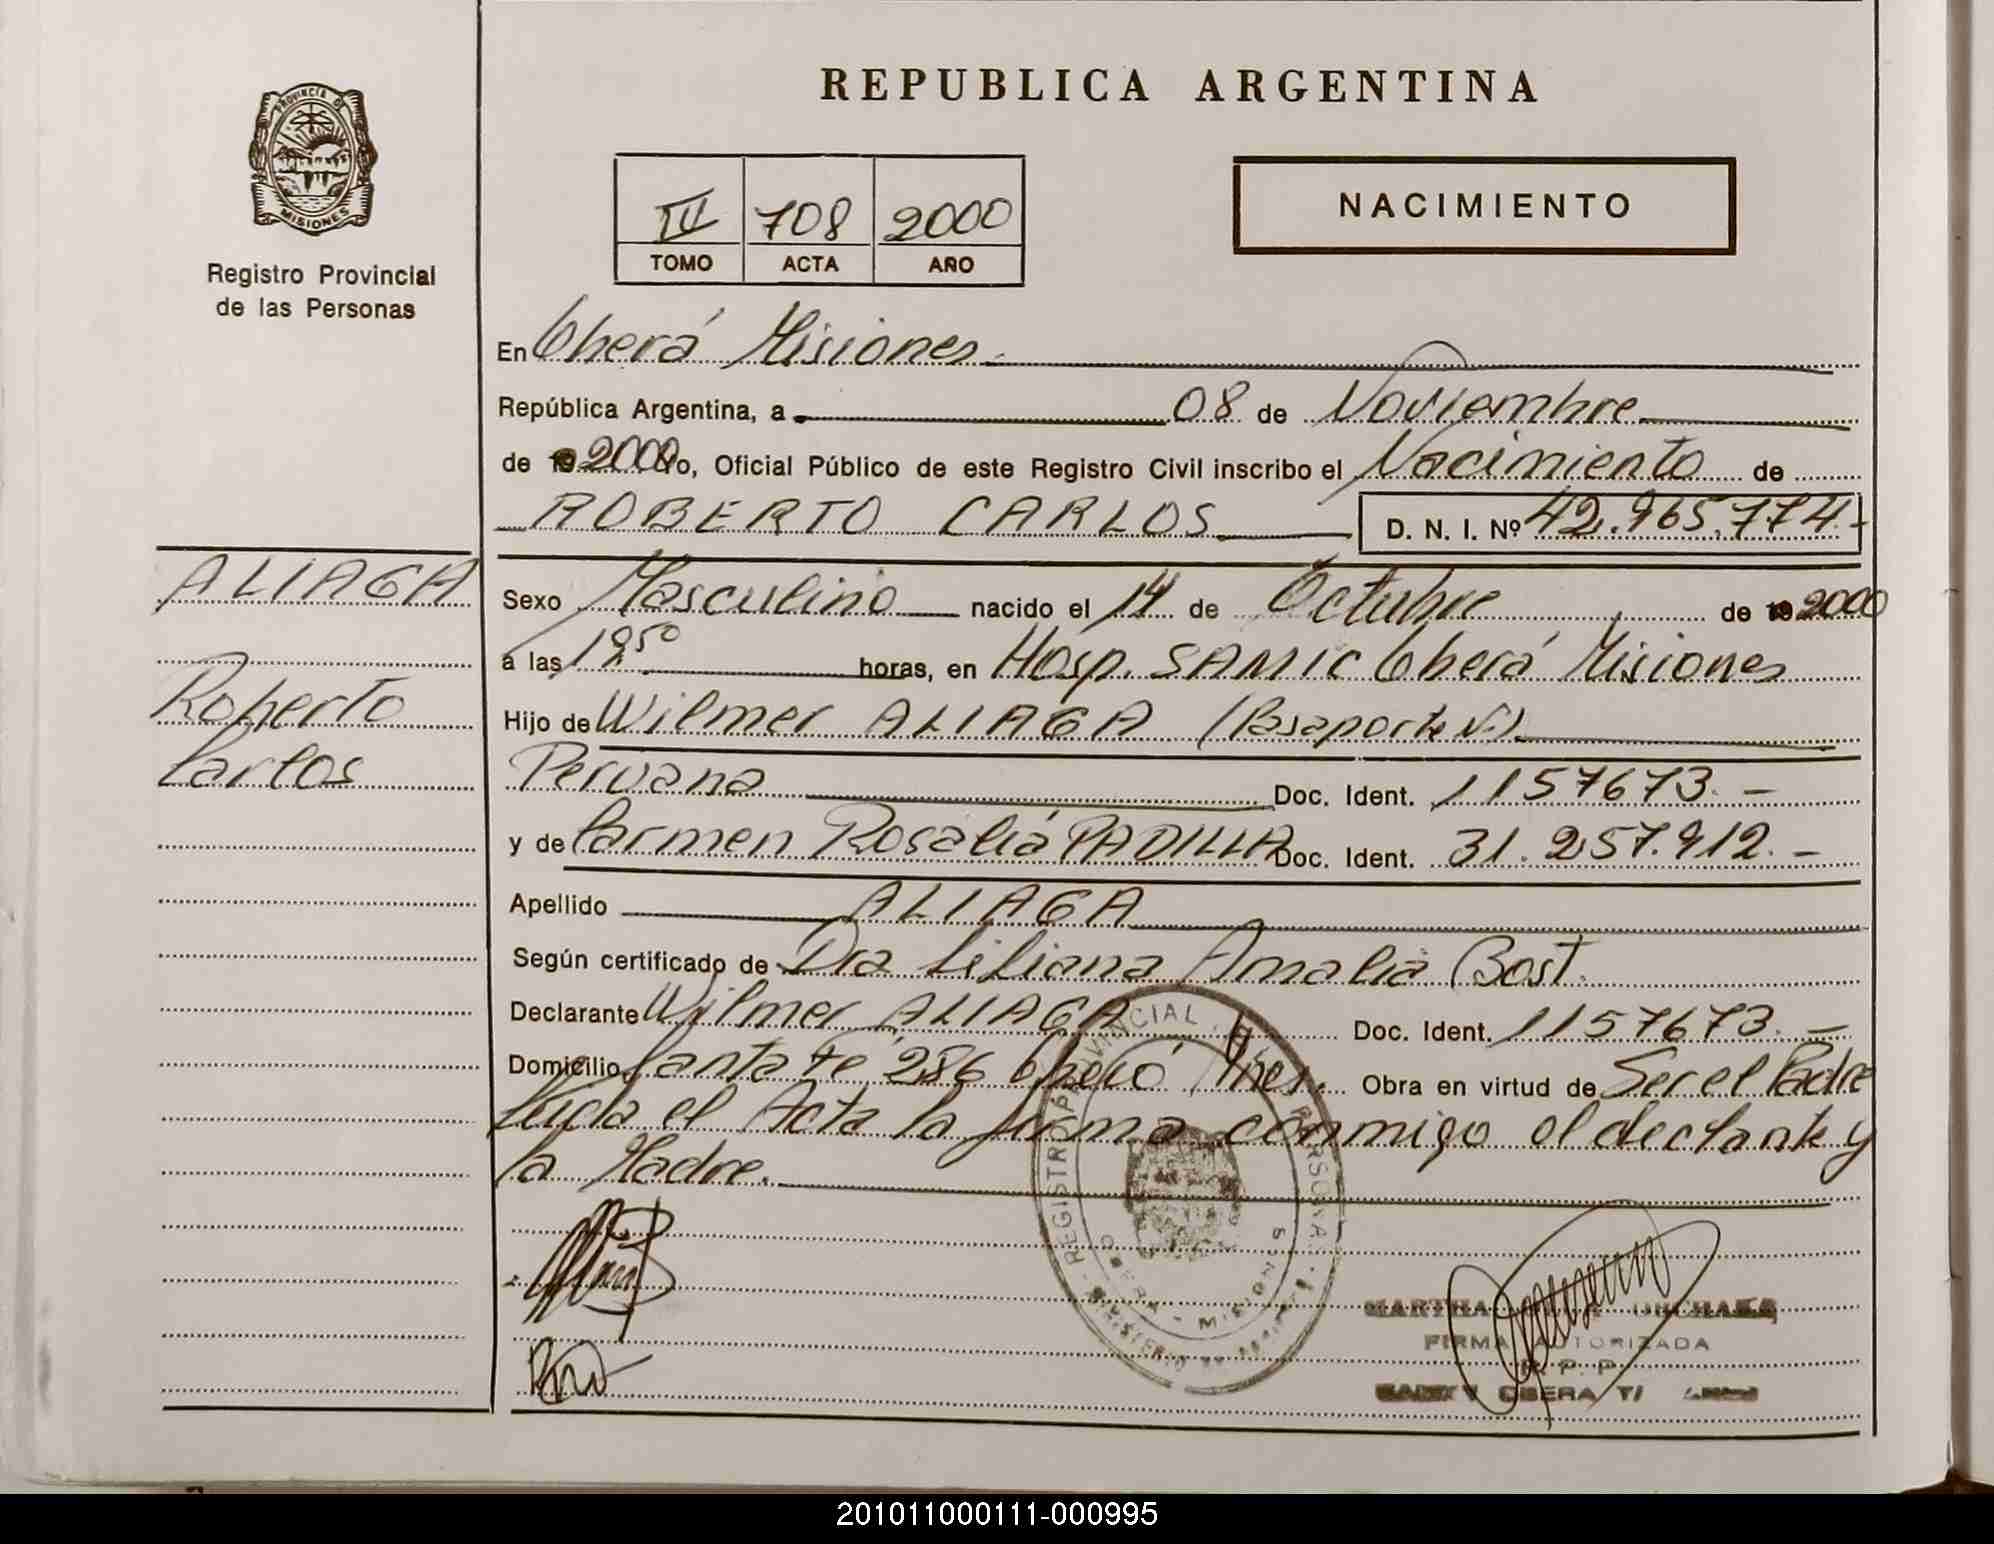 PROVINCIA DE
MISIONES
Registro Provincial
de las Personas
REPUBLICA ARGENTINA
III 708 2000
TOMO ACTA AÑO
NACIMIENTO
En Oberá Misiones
República Argentina, a 08 de Noviembre
de 19 2000 Yo, Oficial Público de este Registro Civil inscribo el Nacimiento de
ROBERTO CARLOS D. N. I. Nº 42.965.774.-
ALIAGA
Roberto
Carlos
Sexo Masculino nacido el 14 de Octubre de 19 2000
a las horas, en Hosp. SAMIC Oberá Misiones
Hijo de Wilmer ALIAGA (Pasaporte Nº)
Peruana Doc. Ident. 1157673.-
y de Carmen Rosalia PADILLA Doc. Ident. 31.257.912.-
Apellido ALIAGA
Según certificado de Dra Liliana Amalia Bost.
Declarante Wilmer ALIAGA Doc. Ident. 1157673.-
Domicilio Santa Fe 286 Oberá Mnes. Obra en virtud de Ser el Padre
Leída el Acta la firma conmigo el declarante y
la Madre.
REGISTRO PROVINCIAL DE LAS PERSONAS
OBERA - MISIONES
MARTHA
FIRMA AUTORIZADA
R.P.P.
OBERA
201011000111-000995